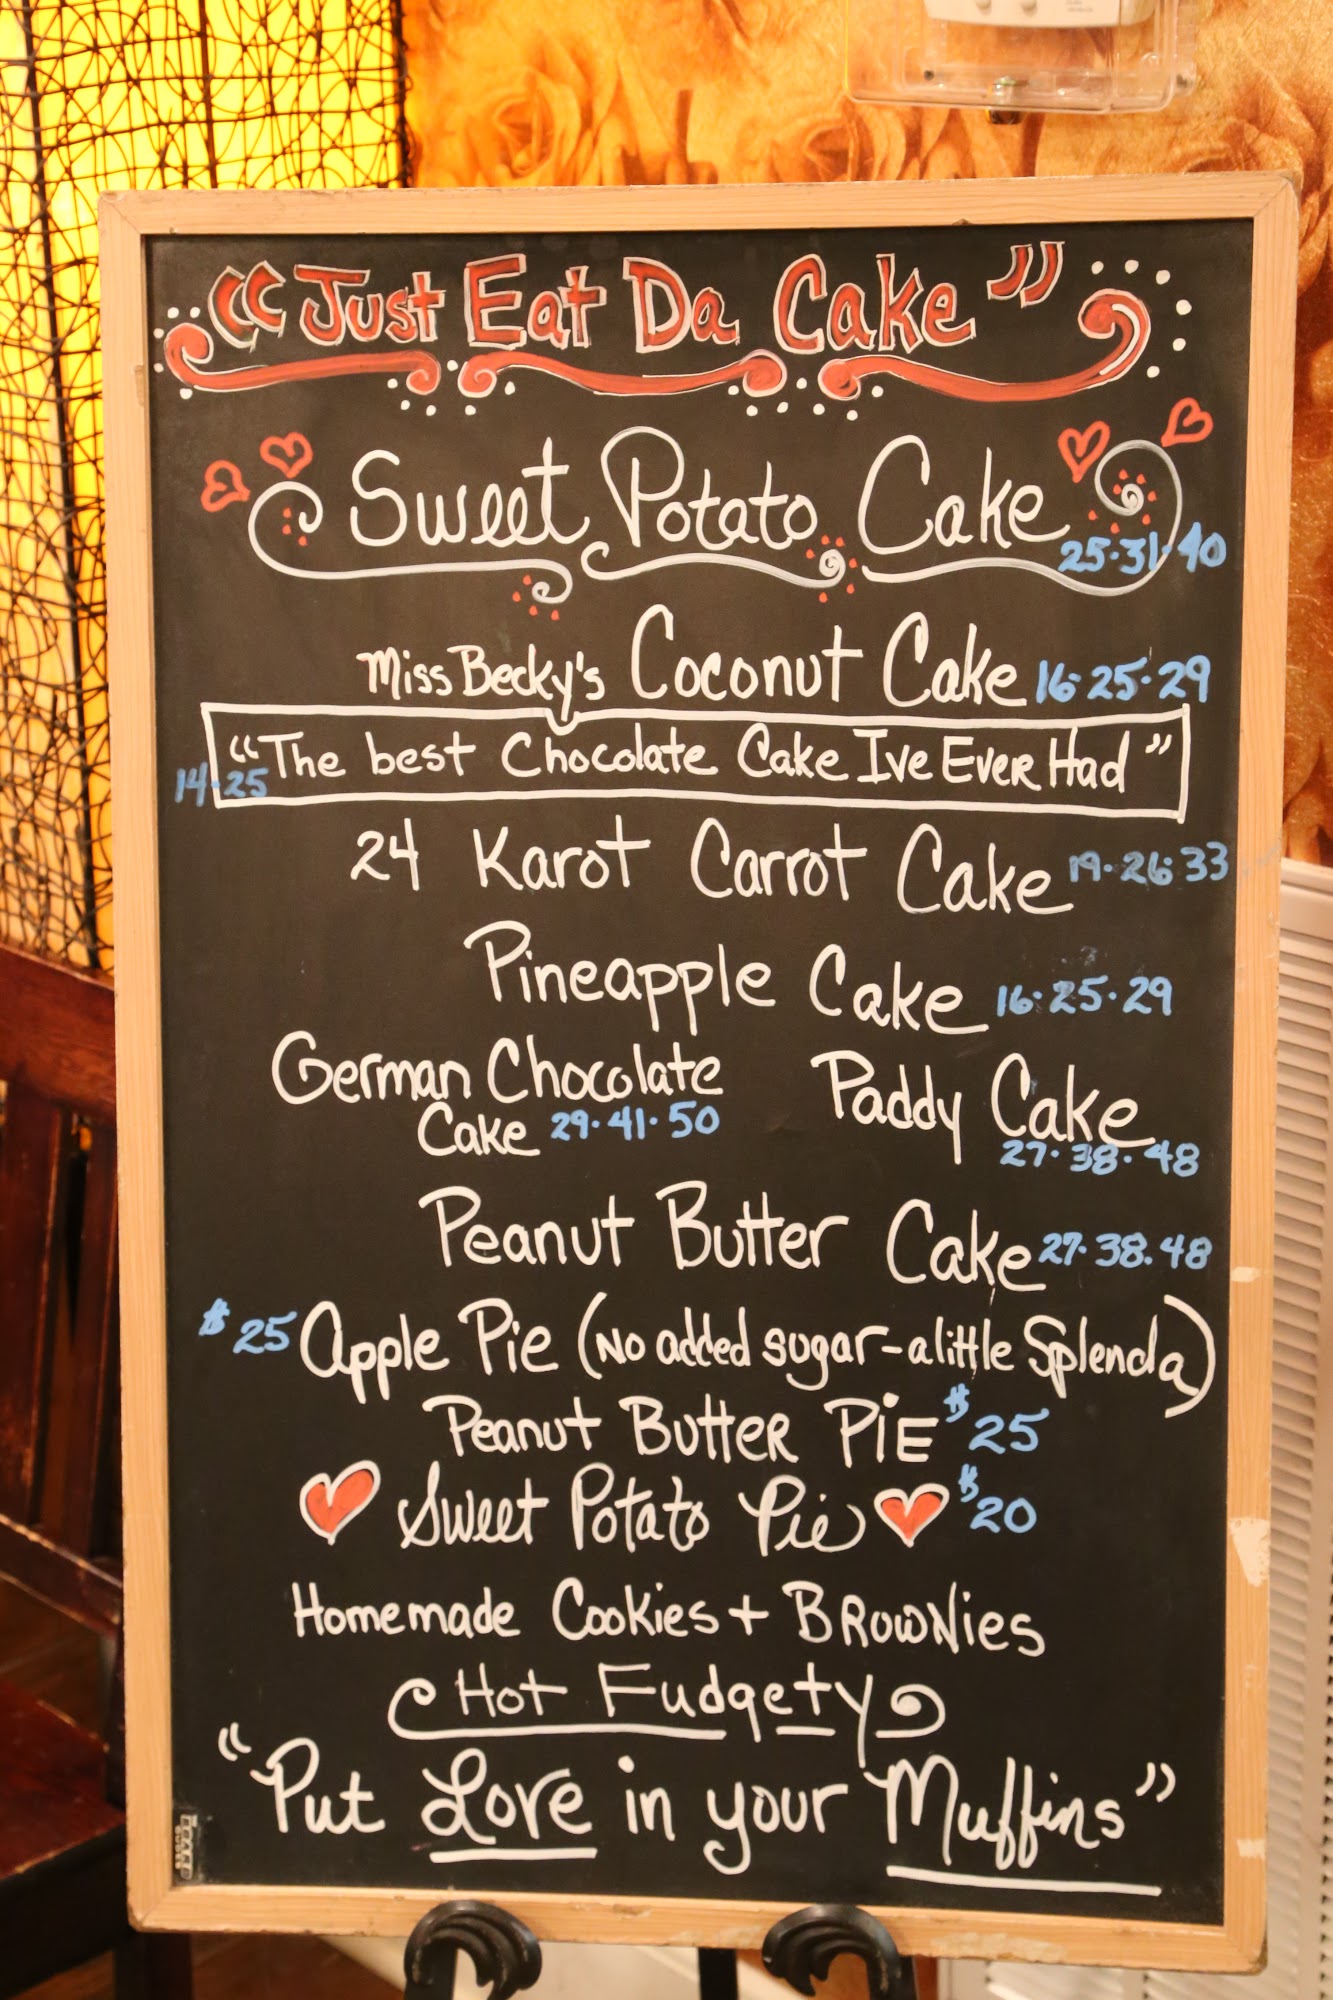 "Just Eat Da Cake"
Sweet Potato Cake
25·31·40
Miss Becky's Coconut Cake 16·25·29
14·25 "The best Chocolate Cake Ive Ever Had"
24 Karot Carrot Cake 19·26·33
Pineapple Cake 16·25·29
German Chocolate
Cake 29·41·50
Paddy Cake
27·38·48
Peanut Butter Cake 27·38·48
$25 Apple Pie (No added sugar - a little Splenda)
Peanut Butter Pie $25
Sweet Potato Pie $20
Homemade Cookies + Brownies
Hot Fudgety
"Put Love in your Muffins"